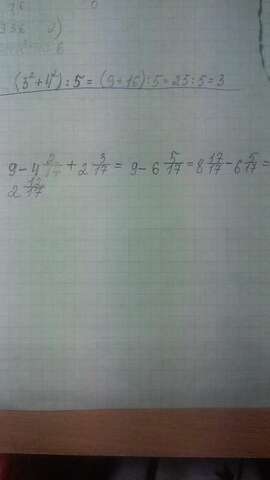 16 0
336 2)
(3² + 4²) : 5 = (9 + 16) : 5 = 25 : 5 = 3
9 - 4 2/17 + 2 3/17 = 9 - 6 5/17 = 8 17/17 - 6 5/17 =
2 12/17